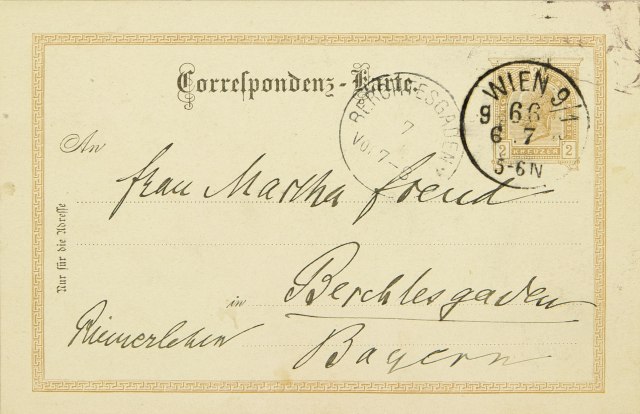 Correspondenz-Karte.
WIEN 9/1
9 66
6 7
5-6N
BERCHTESGADEN
7
VOR 7-8
2 KREUZER 2
An
Frau Martha Freud
Nur für die Adresse
in Berchtesgaden
Riemerlehen
Bayern